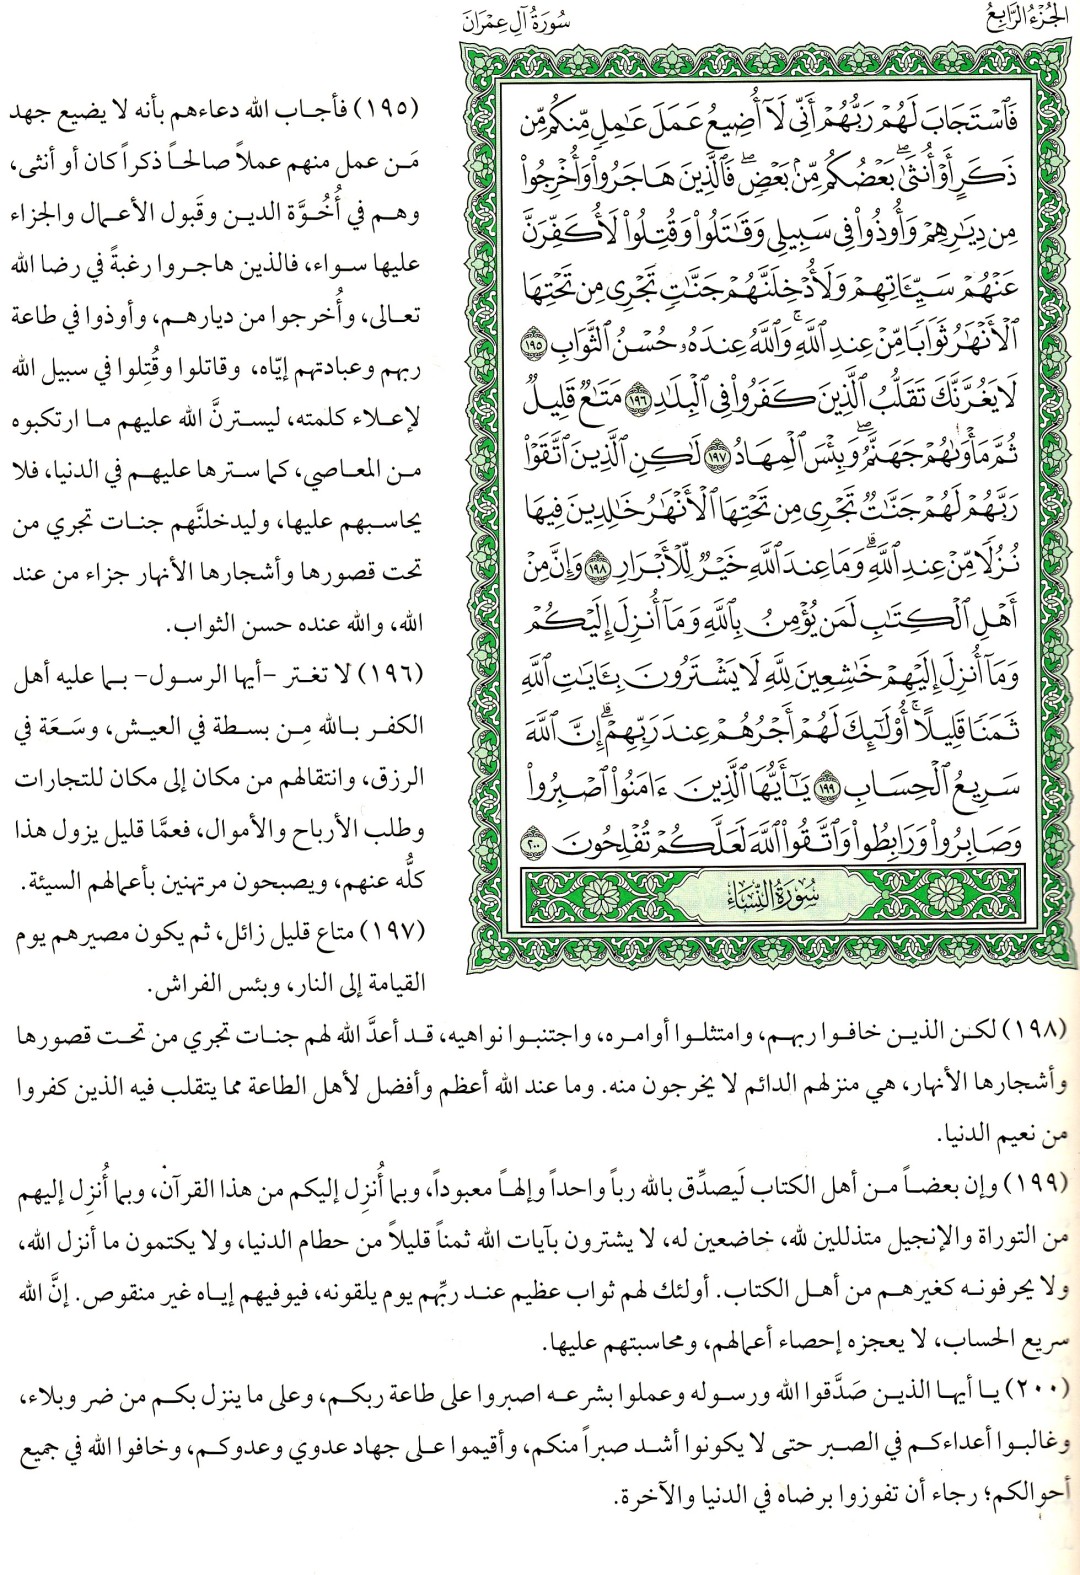 الجُزْءُ الرَّابِعُ
سُورَةُ آلِ عِمْرَانَ
فَٱسْتَجَابَ لَهُمْ رَبُّهُمْ أَنِّي لَآ أُضِيعُ عَمَلَ عَٰمِلٍ مِّنكُم مِّن
ذَكَرٍ أَوْ أُنثَىٰۖ بَعْضُكُم مِّنۢ بَعْضٖۖ فَٱلَّذِينَ هَاجَرُواْ وَأُخْرِجُواْ
مِن دِيَٰرِهِمْ وَأُوذُواْ فِي سَبِيلِي وَقَٰتَلُواْ وَقُتِلُواْ لَأُكَفِّرَنَّ
عَنْهُمْ سَيِّـَٔاتِهِمْ وَلَأُدْخِلَنَّهُمْ جَنَّٰتٖ تَجْرِي مِن تَحْتِهَا
ٱلْأَنْهَٰرُ ثَوَابٗا مِّنْ عِندِ ٱللَّهِۚ وَٱللَّهُ عِندَهُۥ حُسْنُ ٱلثَّوَابِ ١٩٥
لَا يَغُرَّنَّكَ تَقَلُّبُ ٱلَّذِينَ كَفَرُواْ فِي ٱلْبِلَٰدِ ١٩٦ مَتَٰعٞ قَلِيلٞ
ثُمَّ مَأْوَىٰهُمْ جَهَنَّمُۖ وَبِئْسَ ٱلْمِهَادُ ١٩٧ لَٰكِنِ ٱلَّذِينَ ٱتَّقَوْاْ
رَبَّهُمْ لَهُمْ جَنَّٰتٞ تَجْرِي مِن تَحْتِهَا ٱلْأَنْهَٰرُ خَٰلِدِينَ فِيهَا
نُزُلٗا مِّنْ عِندِ ٱللَّهِۗ وَمَا عِندَ ٱللَّهِ خَيْرٞ لِّلْأَبْرَارِ ١٩٨ وَإِنَّ مِنْ
أَهْلِ ٱلْكِتَٰبِ لَمَن يُؤْمِنُ بِٱللَّهِ وَمَآ أُنزِلَ إِلَيْكُمْ
وَمَآ أُنزِلَ إِلَيْهِمْ خَٰشِعِينَ لِلَّهِ لَا يَشْتَرُونَ بِـَٔايَٰتِ ٱللَّهِ
ثَمَنٗا قَلِيلًاۚ أُوْلَٰٓئِكَ لَهُمْ أَجْرُهُمْ عِندَ رَبِّهِمْۗ إِنَّ ٱللَّهَ
سَرِيعُ ٱلْحِسَابِ ١٩٩ يَٰٓأَيُّهَا ٱلَّذِينَ ءَامَنُواْ ٱصْبِرُواْ
وَصَابِرُواْ وَرَابِطُواْ وَٱتَّقُواْ ٱللَّهَ لَعَلَّكُمْ تُفْلِحُونَ ٢٠٠
سُورَةُ النِّسَاءِ
(١٩٥) فأجاب الله دعاءهم بأنه لا يضيع جهد
مَن عمل منهم عملاً صالحاً ذكراً كان أو أنثى،
وهم في أُخُوَّة الدين وقَبول الأعمال والجزاء
عليها سواء، فالذين هاجروا رغبةً في رضا الله
تعالى، وأُخرجوا من ديارهم، وأوذوا في طاعة
ربهم وعبادتهم إيّاه، وقاتلوا وقُتِلوا في سبيل الله
لإعلاء كلمته، ليسترنَّ الله عليهم ما ارتكبوه
من المعاصي، كما سترها عليهم في الدنيا، فلا
يحاسبهم عليها، وليدخلنَّهم جنات تجري من
تحت قصورها وأشجارها الأنهار جزاء من عند
الله، والله عنده حسن الثواب.
(١٩٦) لا تغتر -أيها الرسول- بما عليه أهل
الكفر بالله مِن بسطة في العيش، وسَعَة في
الرزق، وانتقالهم من مكان إلى مكان للتجارات
وطلب الأرباح والأموال، فعمَّا قليل يزول هذا
كلُّه عنهم، ويصبحون مرتهنين بأعمالهم السيئة.
(١٩٧) متاع قليل زائل، ثم يكون مصيرهم يوم
القيامة إلى النار، وبئس الفراش.
(١٩٨) لكن الذين خافوا ربهم، وامتثلوا أوامره، واجتنبوا نواهيه، قد أعدَّ الله لهم جنات تجري من تحت قصورها
وأشجارها الأنهار، هي منزلهم الدائم لا يخرجون منه. وما عند الله أعظم وأفضل لأهل الطاعة مما يتقلب فيه الذين كفروا
من نعيم الدنيا.
(١٩٩) وإن بعضاً من أهل الكتاب لَيصدِّق بالله رباً واحداً وإلهاً معبوداً، وبما أُنزِل إليكم من هذا القرآن، وبما أُنزِل إليهم
من التوراة والإنجيل متذللين لله، خاضعين له، لا يشترون بآيات الله ثمناً قليلاً من حطام الدنيا، ولا يكتمون ما أنزل الله،
ولا يحرفونه كغيرهم من أهل الكتاب. أولئك لهم ثواب عظيم عند ربِّهم يوم يلقونه، فيوفيهم إياه غير منقوص. إنَّ الله
سريع الحساب، لا يعجزه إحصاء أعمالهم، ومحاسبتهم عليها.
(٢٠٠) يا أيها الذين صَدَّقوا الله ورسوله وعملوا بشرعه اصبروا على طاعة ربكم، وعلى ما ينزل بكم من ضر وبلاء،
وغالبوا أعداءكم في الصبر حتى لا يكونوا أشد صبراً منكم، وأقيموا على جهاد عدوي وعدوكم، وخافوا الله في جميع
أحوالكم؛ رجاء أن تفوزوا برضاه في الدنيا والآخرة.